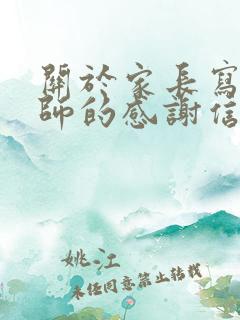 關於家長寫
師的感謝信
姚江
未經同意禁止轉載